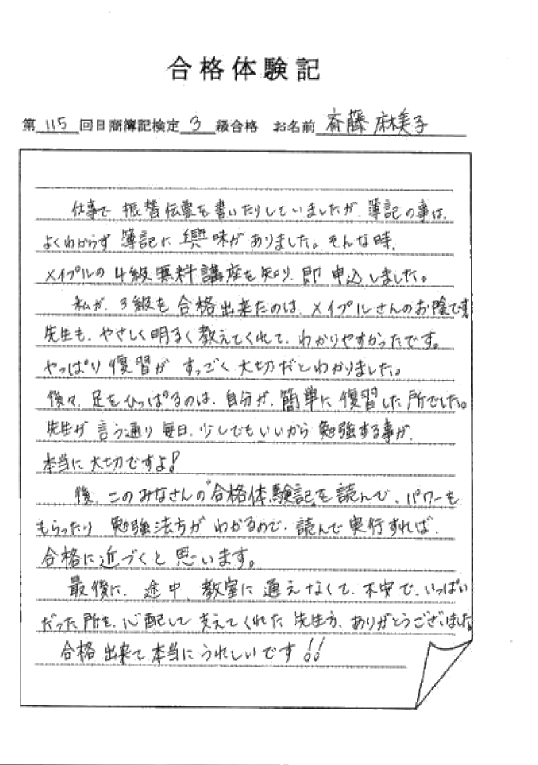 合格体験記
第 115 回日商簿記検定 3 級合格 お名前 斉藤 麻美子
仕事で 振替伝票を書いたりしていましたが、簿記の事は、
よくわからず 簿記に 興味がありました。そんな時、
メイプルの 4級無料講座を知り、即 申込しました。
私が、3級を 合格出来たのは、メイプルさんのお陰です
先生も、やさしく明るく教えてくれて、わかりやすかったです。
やっぱり 復習が すっごく 大切だとわかりました。
後々、足をひっぱるのは、自分が、簡単に復習した所でした。
先生が 言う通り 毎日、少しでもいいから 勉強する事が、
本当に大切ですよ!
後、このみなさんの"合格体験記"を読んで、パワーを
もらったり 勉強法方が わかるので、読んで実行すれば、
合格に近づくと思います。
最後に、途中、教室に通えなくて、不安で、いっぱい
だった所を、心配して 支えてくれた 先生方、ありがとうございました
合格出来て本当にうれしいです!!